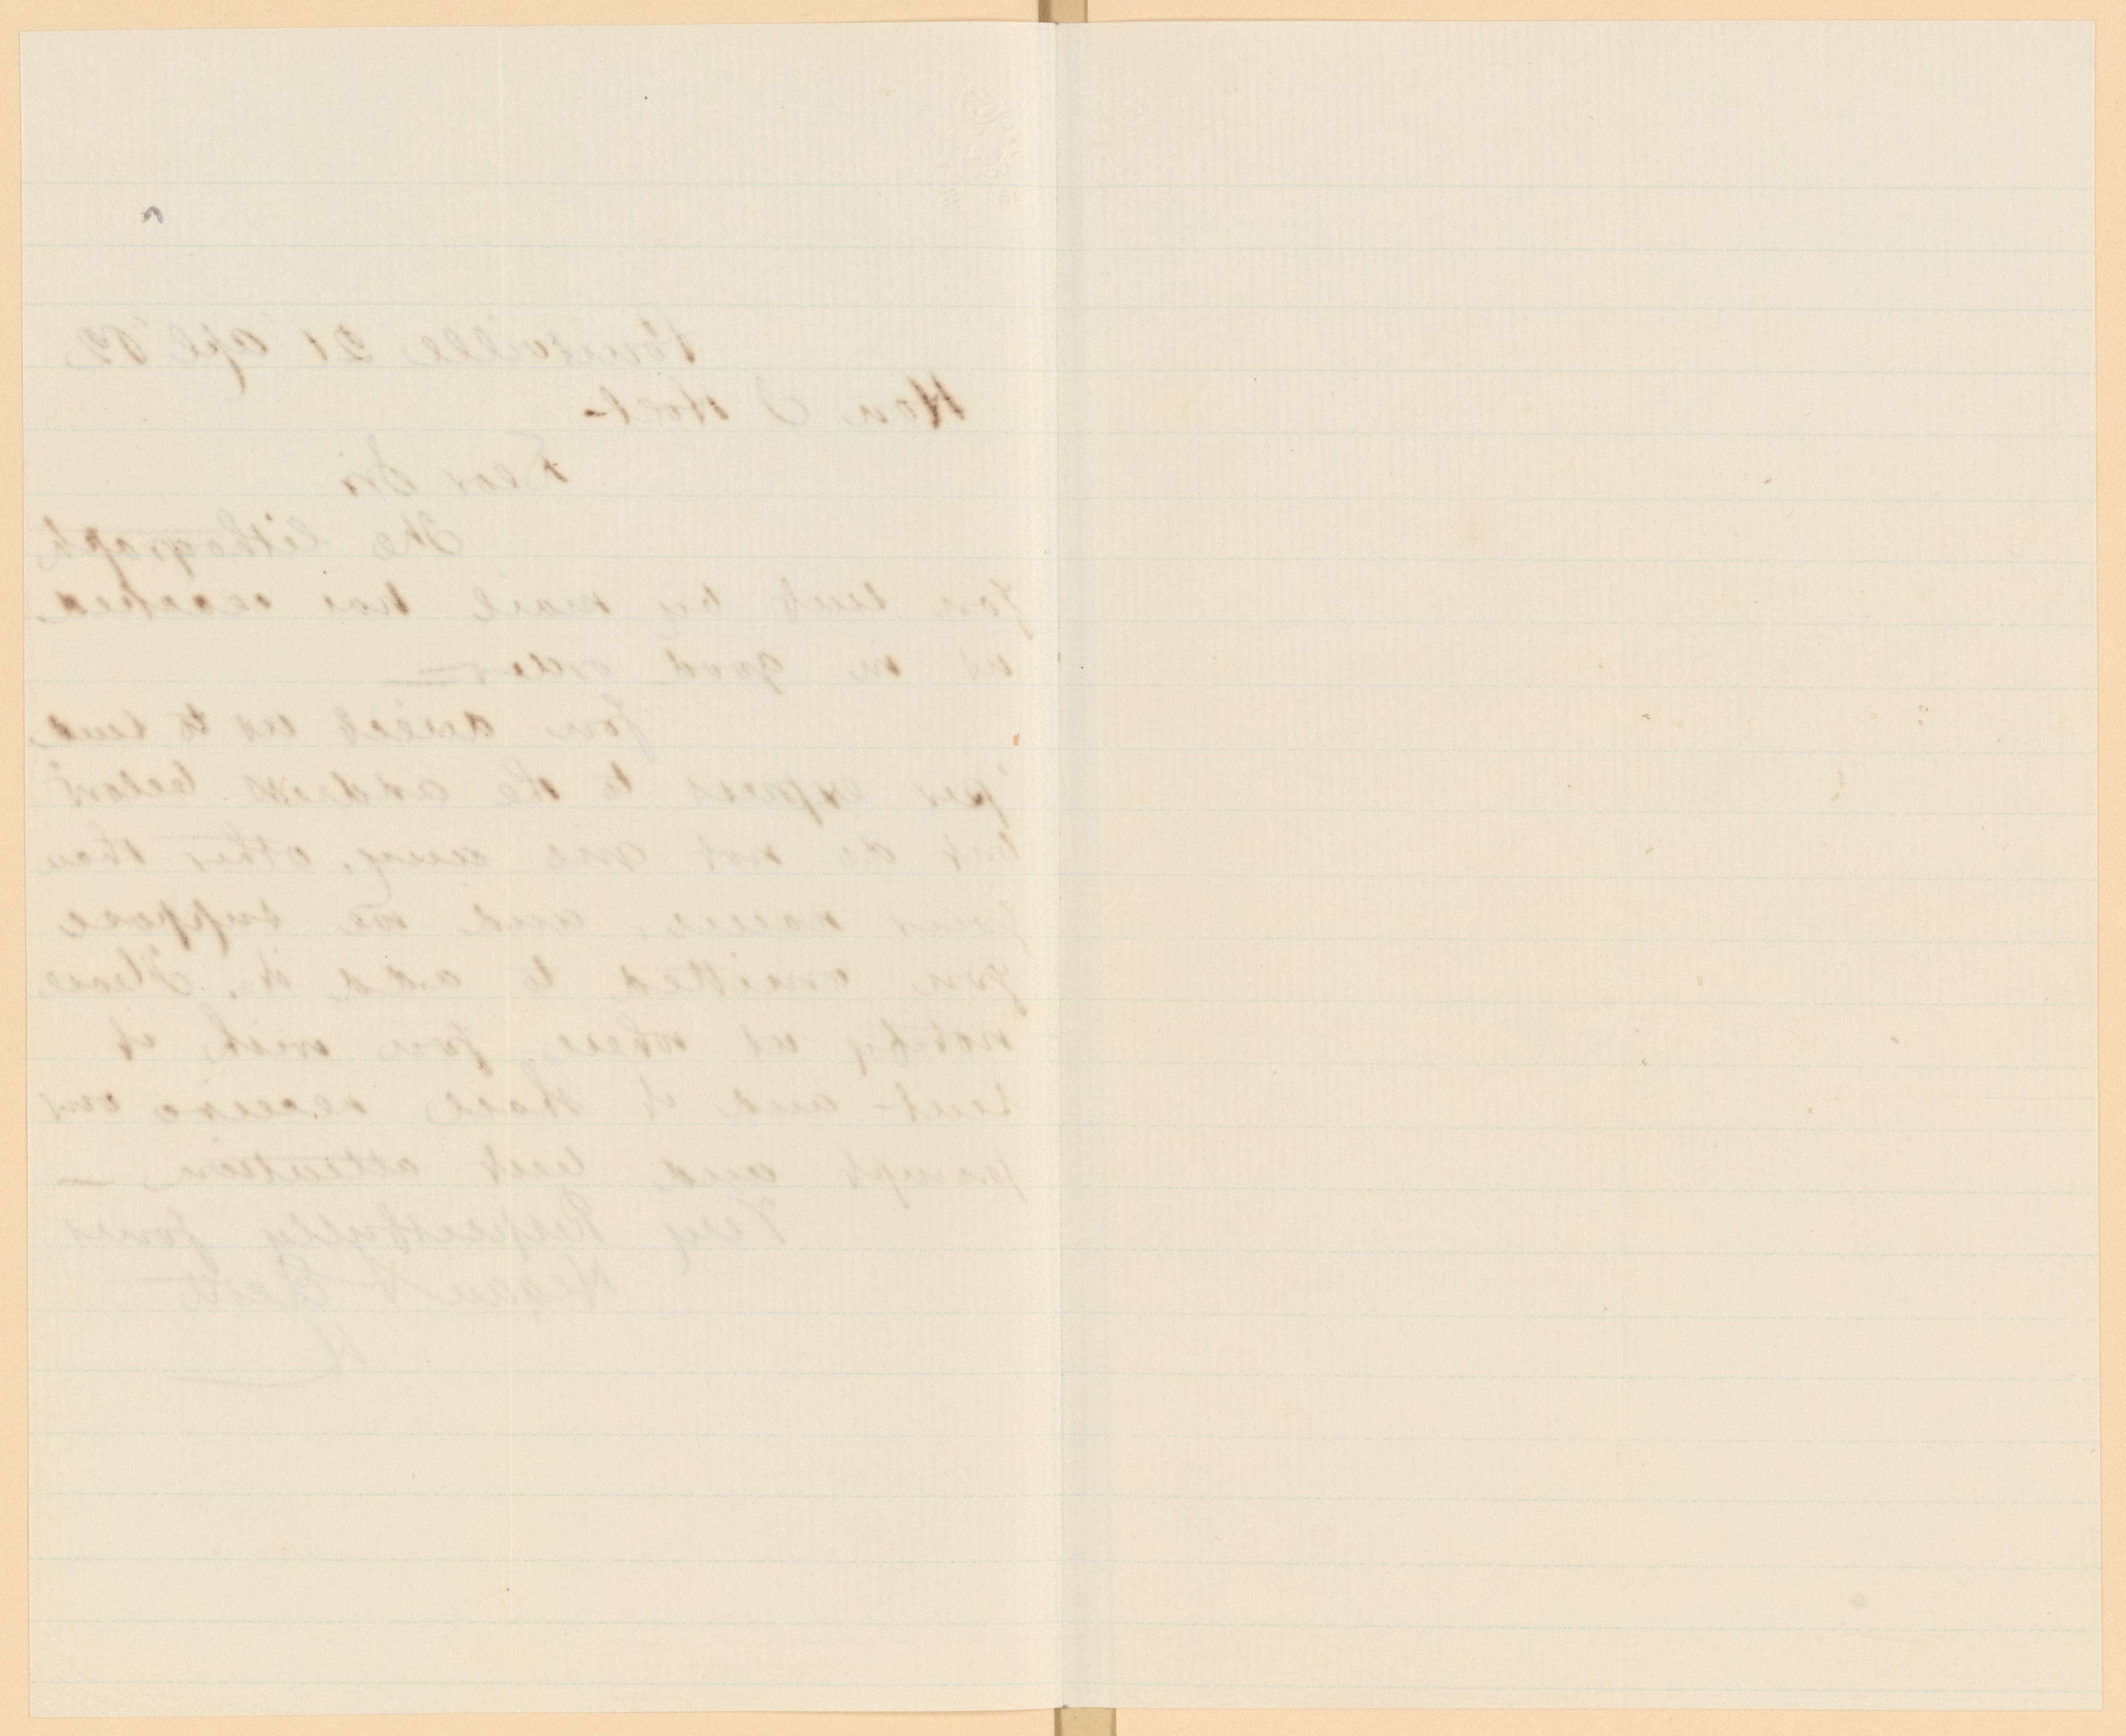 Louisville 21 Apl 62
Hon J Holt-
Dear Sir
The lithograph
you sent by mail has reached
us in good order—
You direct us to send
per express to the address below
but do not give any, other than
your name, and we suppose
you omitted to add it. Please
notify us where you wish it
sent- and it shall receive our
prompt and best attention. —
Very Respectfully yours
Hegan &